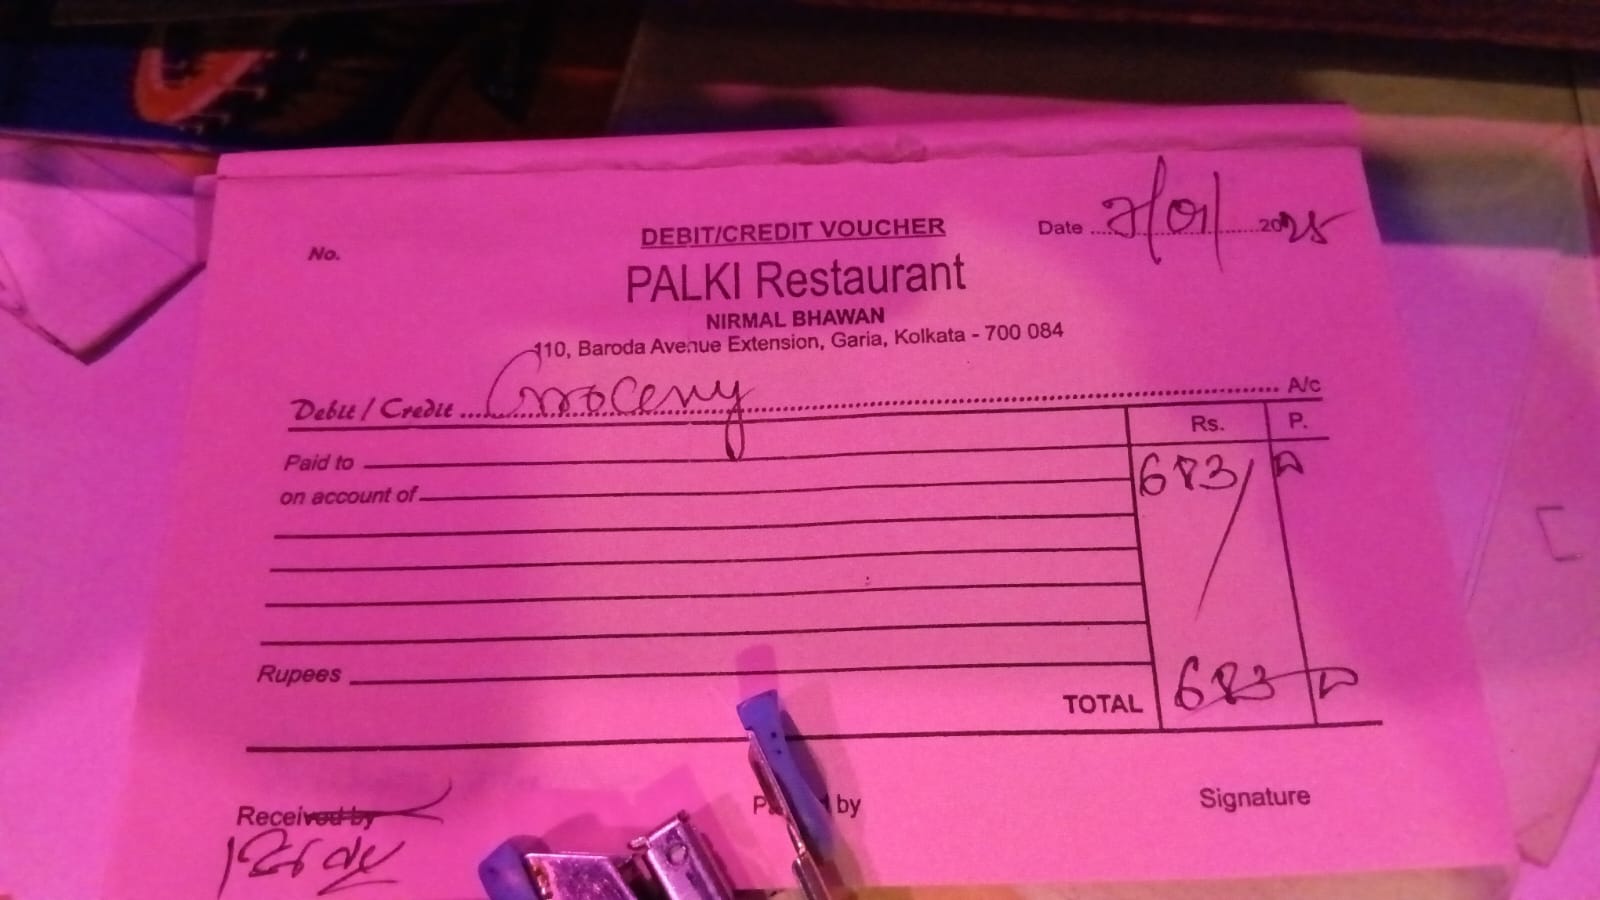 No.
DEBIT/CREDIT VOUCHER
Date ........ /01/ ........ 2025
PALKI Restaurant
NIRMAL BHAWAN
110, Baroda Avenue Extension, Garia, Kolkata - 700 084
Debit / Credit ........ Grocery ........ A/c
Rs. P.
Paid to
683/
on account of
Rupees
TOTAL 683
Received by
by
Signature